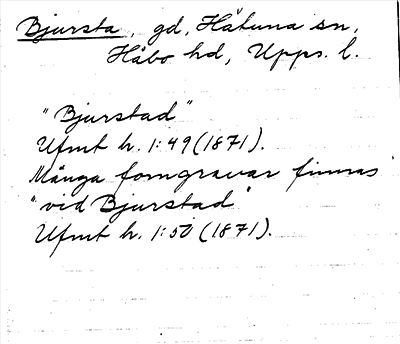 Bjursta, gd, Håtuna sn,
Håbo hd, Upps. l.
"Bjurstad"
Ufmt h. 1:49 (1871).
Många forngravar finnas
"vid Bjurstad"
Ufmt h. 1:50 (1871).